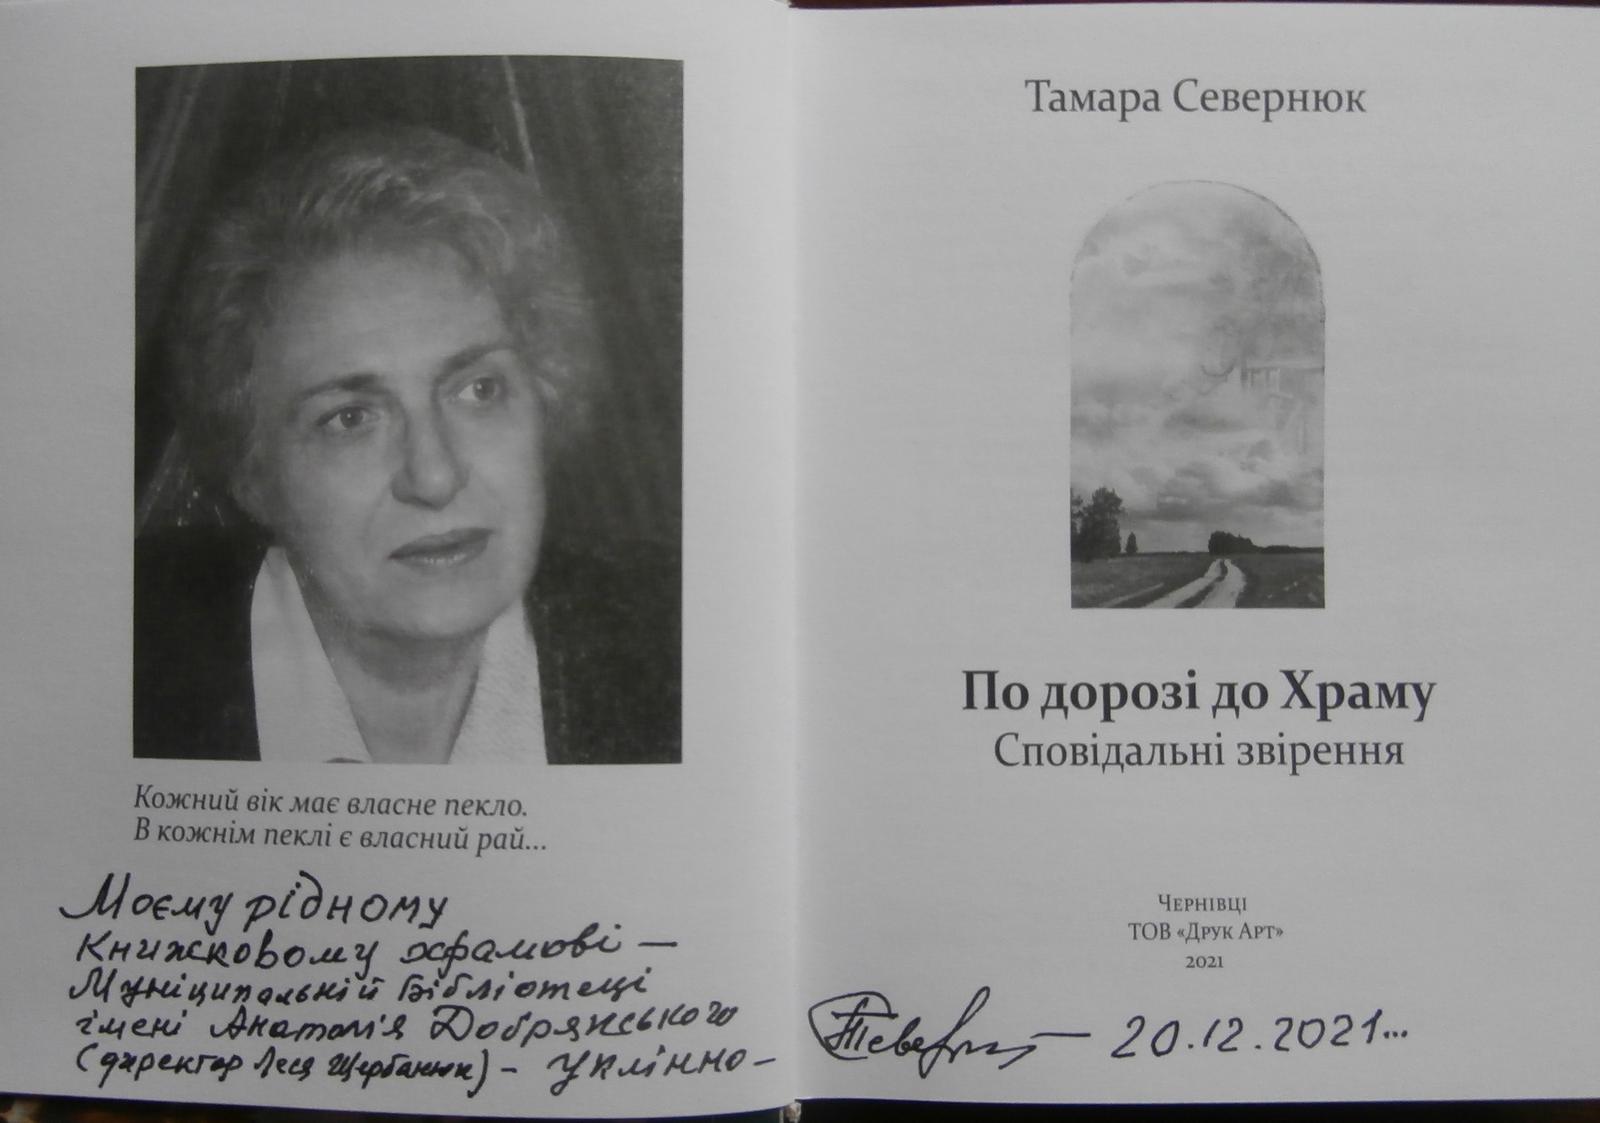 Кожний вік має власне пекло.
В кожнім пеклі є власний рай...
Моєму рідному
Книжковому храмові —
Муніципальній бібліотеці
імені Анатолія Добрянського
(директор Леся Щербанюк) – уклінно –
Тамара Севернюк
По дорозі до Храму
Сповідальні звірення
Чернівці
ТОВ «Друк Арт»
2021
— 20.12.2021...